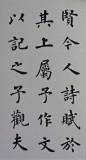 賢今人詩賦於
其上屬予作文
以記之予觀夫